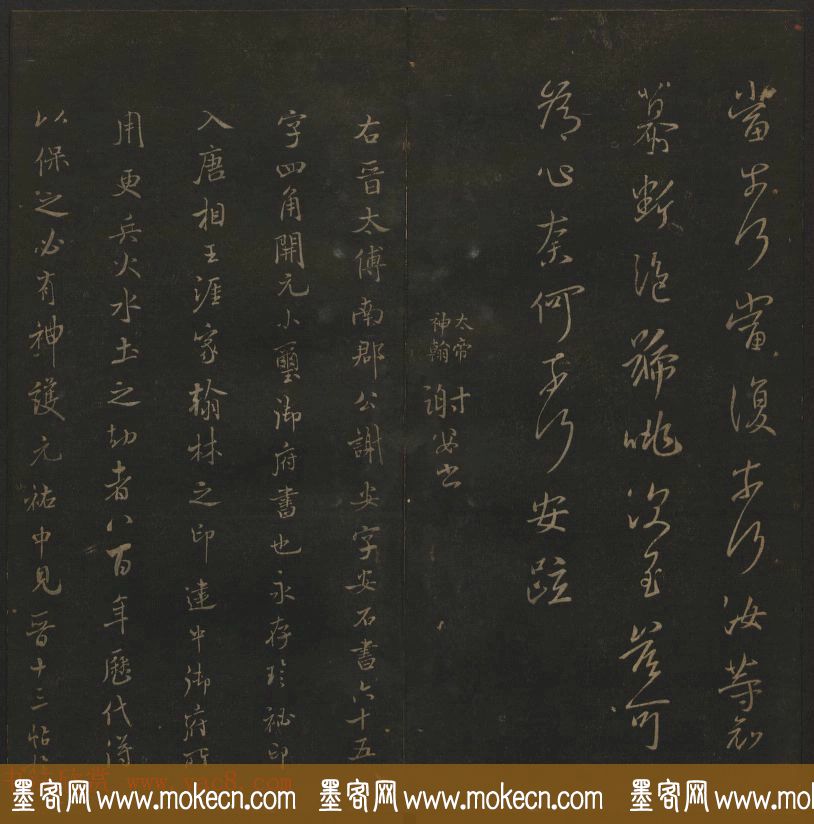 當奈何當復奈何汝等哀
慕斷絕號咷深至豈可
為心奈何奈何安疏
太帝
神翰
謝安書
右晉太傅南郡公謝安字安石書六十五
字四角開元小璽御府書也永存珍秘印
入唐相王涯家翰林之印建中御府所
用更兵火水土之劫者八百年歷代得
以保之必有神護元祐中見晉十三帖於
书法欣赏 www.yac8.com
墨客网 www.mokecn.com 墨客网 www.mokecn.com 墨客网 www.mokecn.com